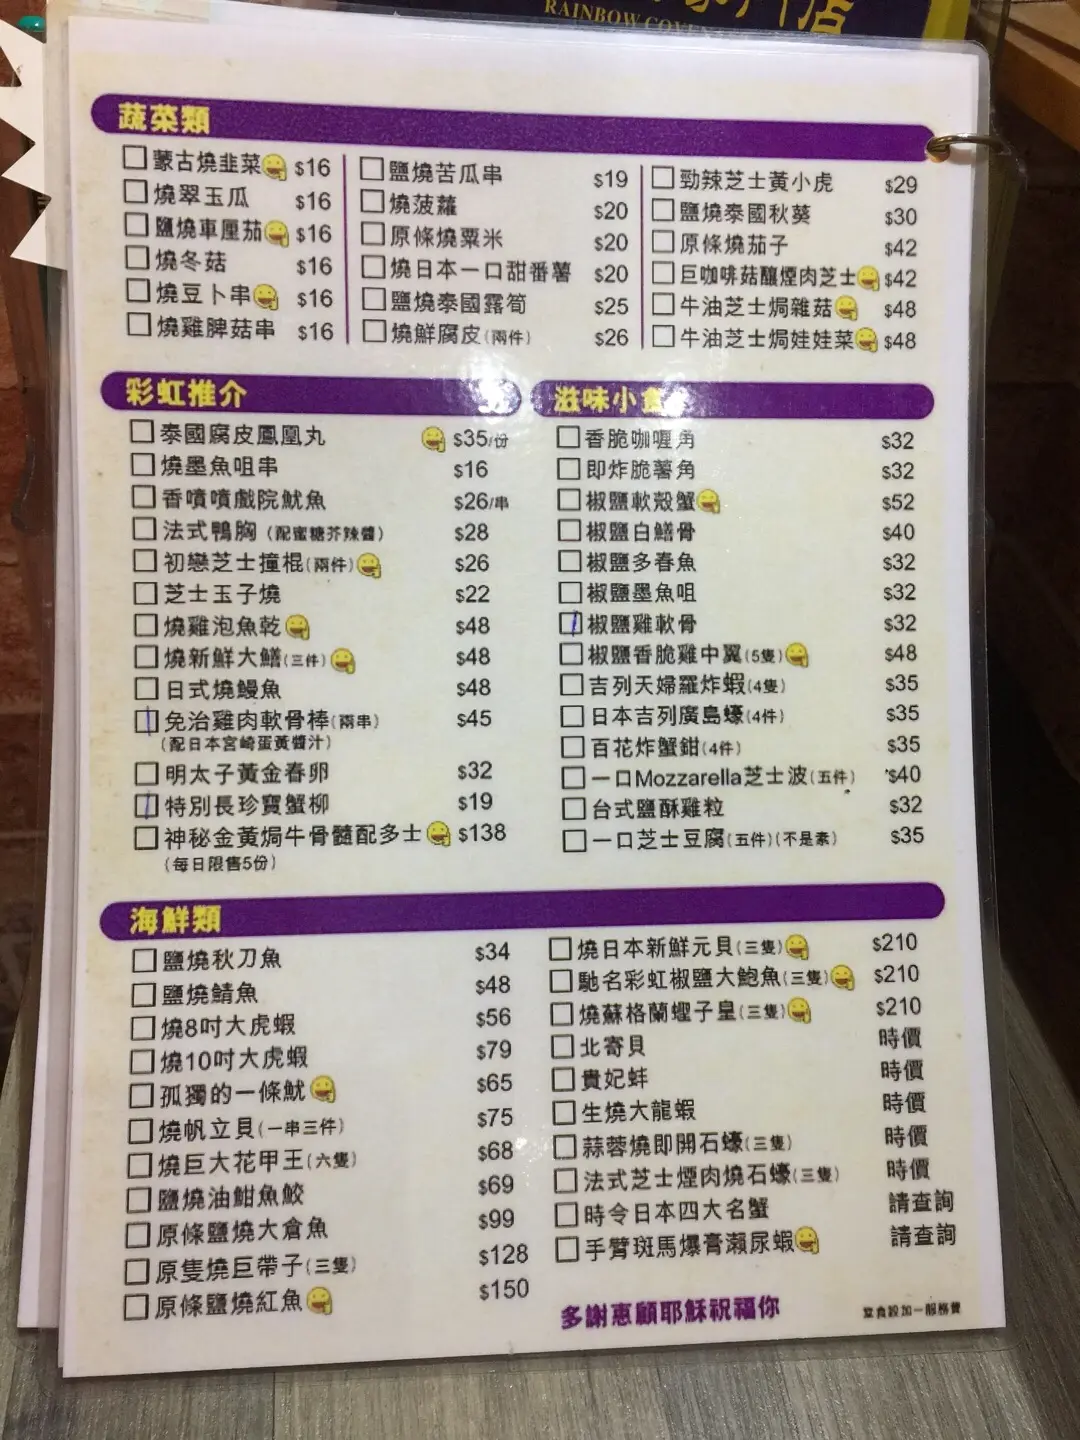 RAINBOW
蔬菜類
蒙古燒韭菜 $16
燒翠玉瓜 $16
鹽燒車厘茄 $16
燒冬菇 $16
燒豆卜串 $16
燒雞脾菇串 $16
鹽燒苦瓜串 $19
燒菠蘿 $20
原條燒粟米 $20
燒日本一口甜番薯 $20
鹽燒泰國露筍 $25
燒鮮腐皮(兩件) $26
勁辣芝士黃小虎 $29
鹽燒泰國秋葵 $30
原條燒茄子 $42
巨咖啡菇釀煙肉芝士 $42
牛油芝士焗雜菇 $48
牛油芝士焗娃娃菜 $48
彩虹推介
泰國腐皮鳳凰丸 $35/份
燒墨魚咀串 $16
香噴噴戲院魷魚 $26/串
法式鴨胸(配蜜糖芥辣醬) $28
初戀芝士撞棍(兩件) $26
芝士玉子燒 $22
燒雞泡魚乾 $48
燒新鮮大鱔(三件) $48
日式燒鰻魚 $48
免治雞肉軟骨棒(兩串) $45
(配日本宮崎蛋黃醬汁)
明太子黃金春卵 $32
特別長珍寶蟹柳 $19
神秘金黃焗牛骨髓配多士 $138
(每日限售5份)
滋味小
香脆咖喱角 $32
即炸脆薯角 $32
椒鹽軟殼蟹 $52
椒鹽白鱔骨 $40
椒鹽多春魚 $32
椒鹽墨魚咀 $32
椒鹽雞軟骨 $32
椒鹽香脆雞中翼(5隻) $48
吉列天婦羅炸蝦(4隻) $35
日本吉列廣島蠔(4件) $35
百花炸蟹鉗(4件) $35
一口Mozzarella芝士波(五件) $40
台式鹽酥雞粒 $32
一口芝士豆腐(五件)(不是素) $35
海鮮類
鹽燒秋刀魚 $34
鹽燒鯖魚 $48
燒8吋大虎蝦 $56
燒10吋大虎蝦 $79
孤獨的一條魷 $65
燒帆立貝(一串三件) $75
燒巨大花甲王(六隻) $68
鹽燒油鮒魚鮫 $69
原條鹽燒大倉魚 $99
原隻燒巨帶子(三隻) $128
原條鹽燒紅魚 $150
燒日本新鮮元貝(三隻) $210
馳名彩虹椒鹽大鮑魚(三隻) $210
燒蘇格蘭蟶子皇(三隻) $210
北寄貝 時價
貴妃蚌 時價
生燒大龍蝦 時價
蒜蓉燒即開石蠔(三隻) 時價
法式芝士煙肉燒石蠔(三隻) 時價
時令日本四大名蟹 請查詢
手臂斑馬爆膏瀨尿蝦 請查詢
多謝惠顧耶穌祝福你
堂食設加一服務費